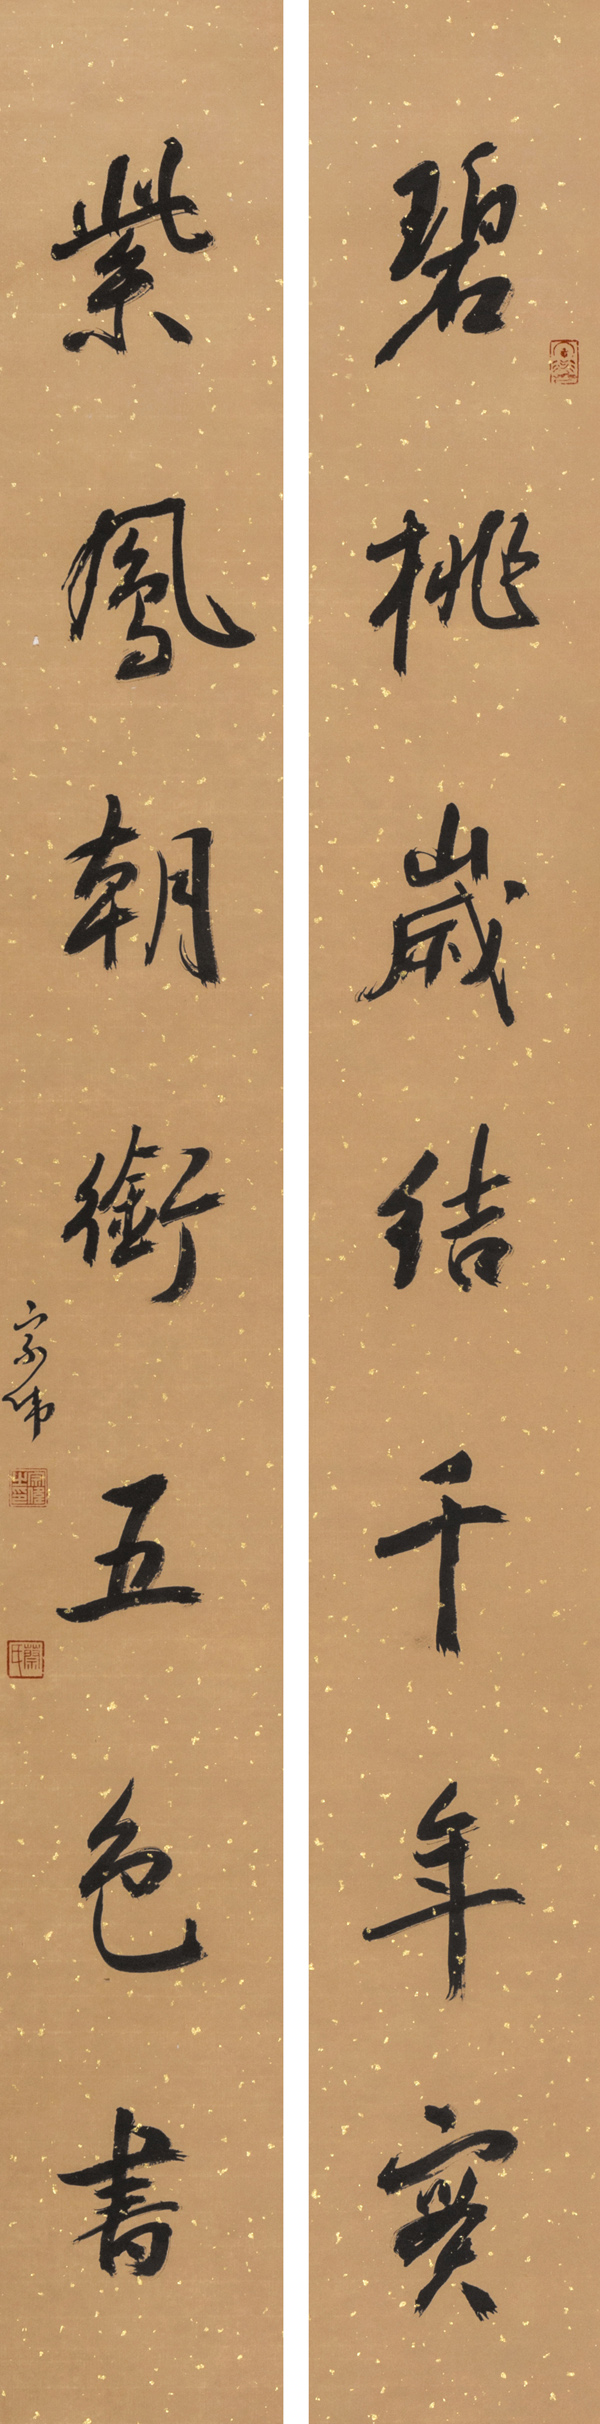 碧桃歲結千年實
紫鳳朝銜五色書
宗偉